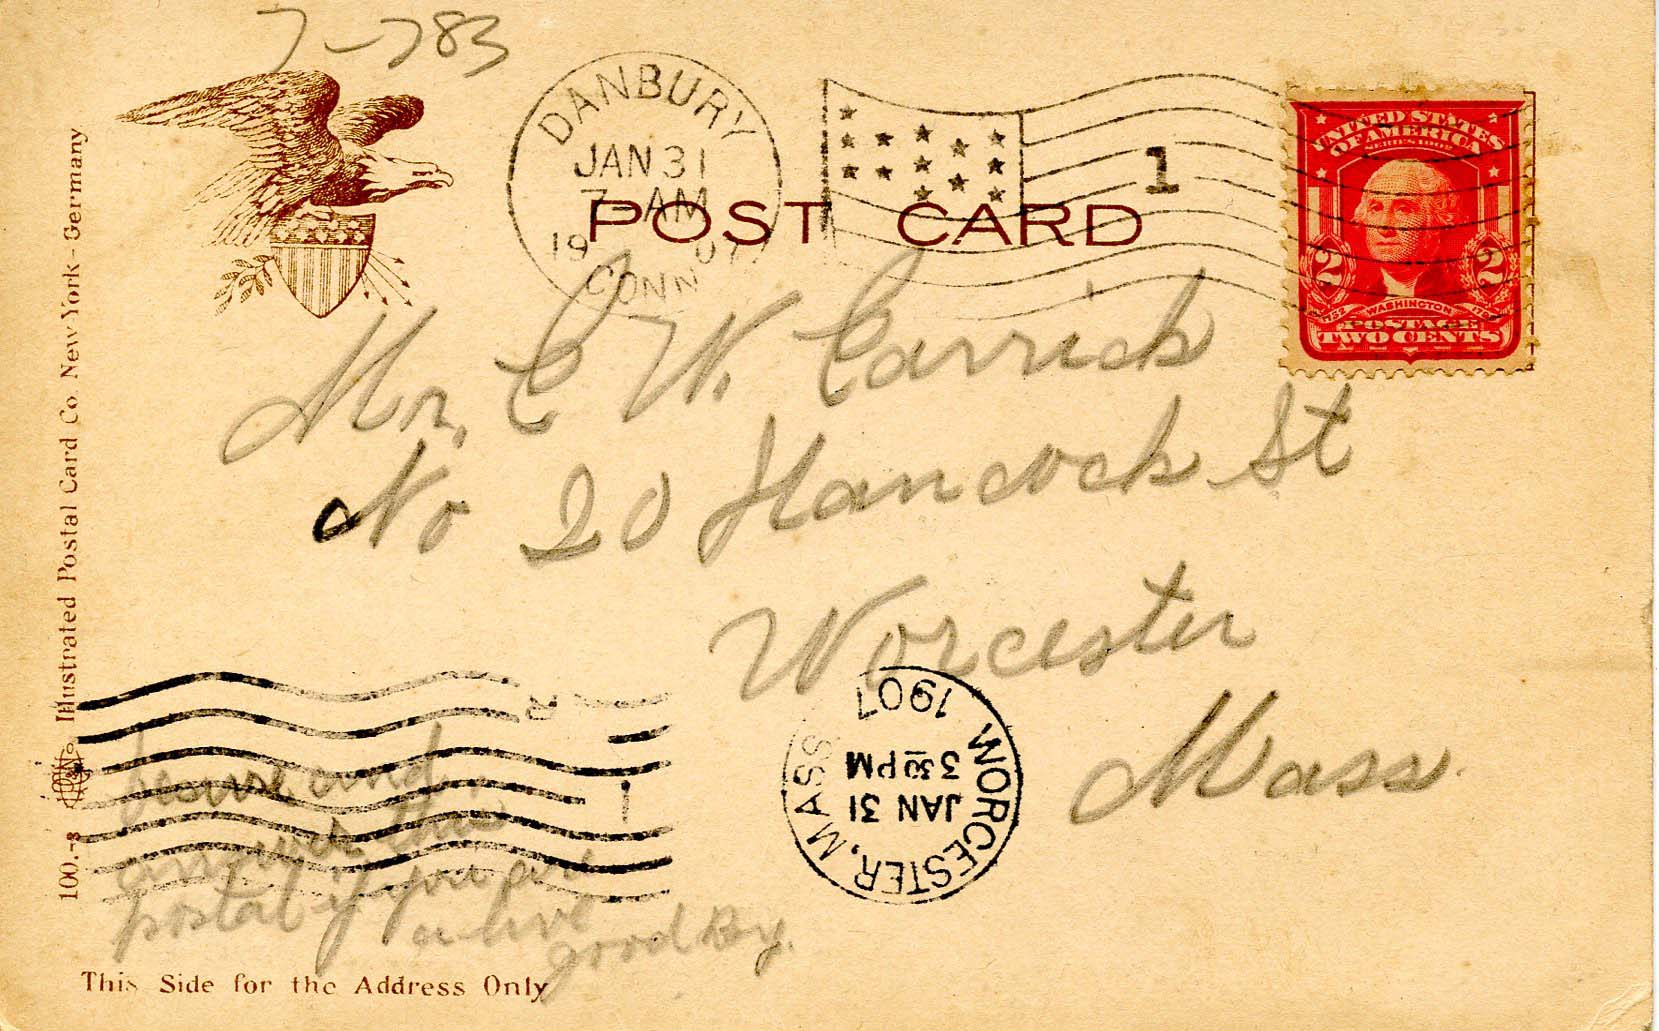 7-783
DANBURY
JAN 31
7-AM
1907
CONN
1
POST CARD
UNITED STATES
OF AMERICA
SERIES 1902
2 2
1732 WASHINGTON
POSTAGE
TWO CENTS
Mr. C W. Carrick
No 20 Hancock St
Worcester
Mass.
Illustrated Postal Card Co. New York - Germany
100.-3
besure and
answer this
postal if you are
alive
good By.
WORCESTER, MASS
JAN 31
330 PM
1907
This Side for the Address Only